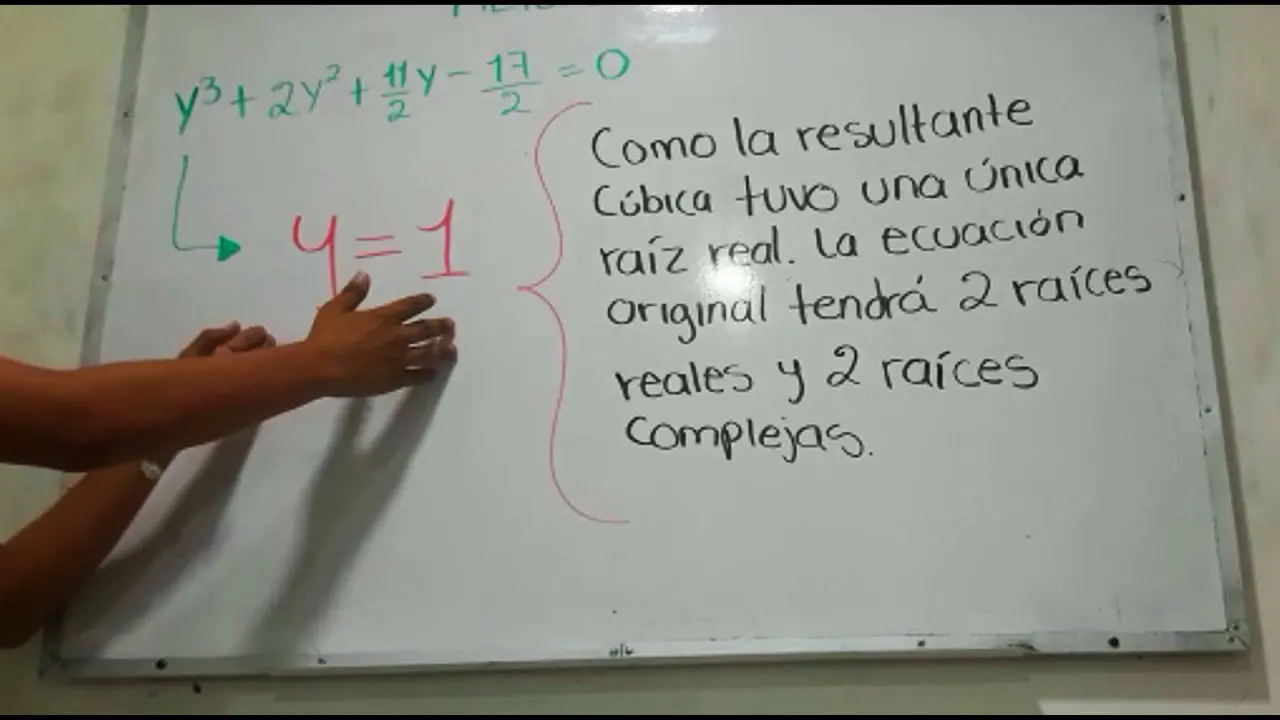 y³ + 2y² + 11/2 y - 17/2 = 0
y = 1
Como la resultante
Cúbica tuvo una única
raíz real. la ecuación
original tendrá 2 raíces
reales y 2 raíces
complejas.